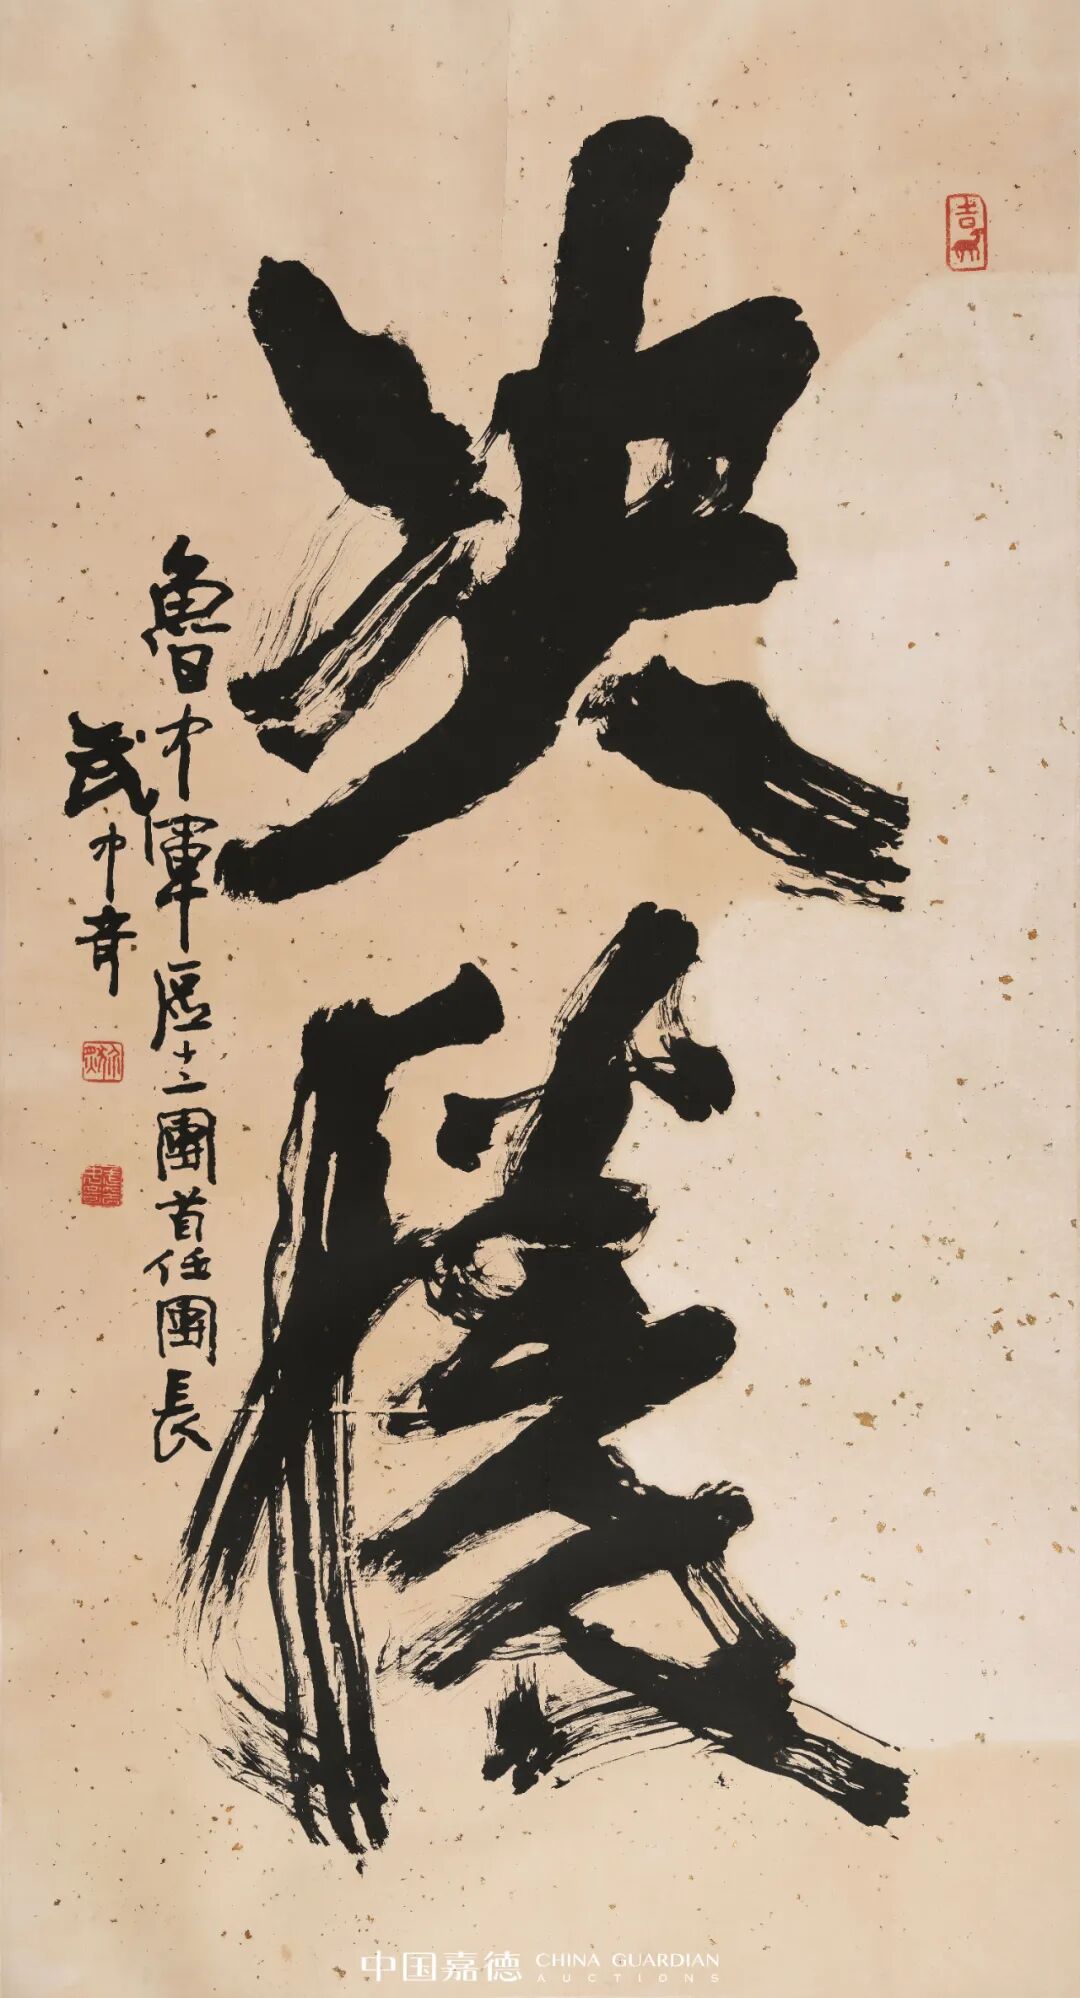 决勝
魯中軍區十二團首任團長
武中奇
吉
中国嘉德 CHINA GUARDIAN
AUCTIONS